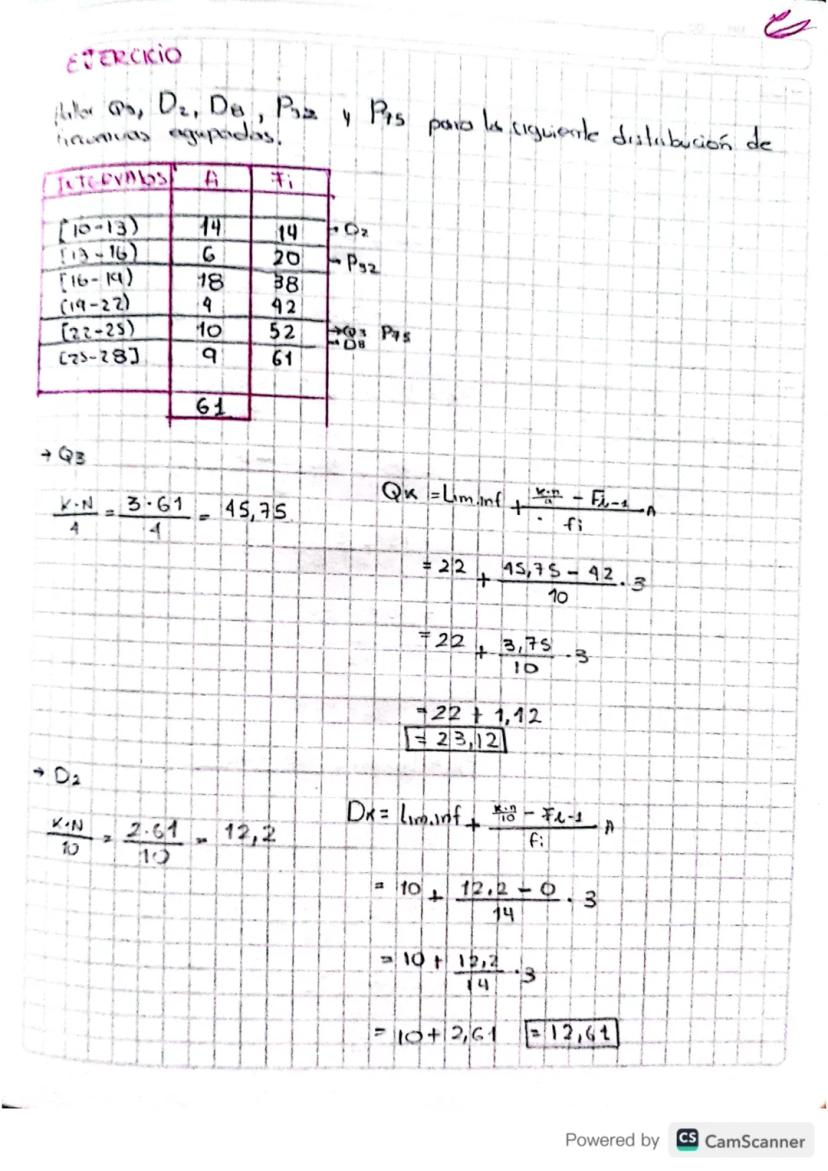 EJERCICIO
Hallar Q3, D2, D8, P32 y P75 para la siguiente distribución de
agupados.
INTERVALOS fi Fi
[10-13) 14 14 → D2
[13-16) 6 20 → P32
[16-19) 18 38
[19-22) 4 42
[22-25) 10 52 → Q3 P75
→ D8
[25-28] 9 61
61
→ Q3
K·N/4 = 3·61/4 = 45,75
Qk = Lim.inf + (k·n/4 - Fi-1)/fi · A
= 22 + (45,75 - 42)/10 · 3
= 22 + 3,75/10 · 3
= 22 + 1,12
= 23,12
→ D2
K·N/10 = 2·61/10 = 12,2
Dk = Lim.inf + (k·n/10 - Fi-1)/fi · A
= 10 + (12,2 - 0)/14 · 3
= 10 + 12,2/14 · 3
= 10 + 2,61 = 12,61
Powered by CS CamScanner